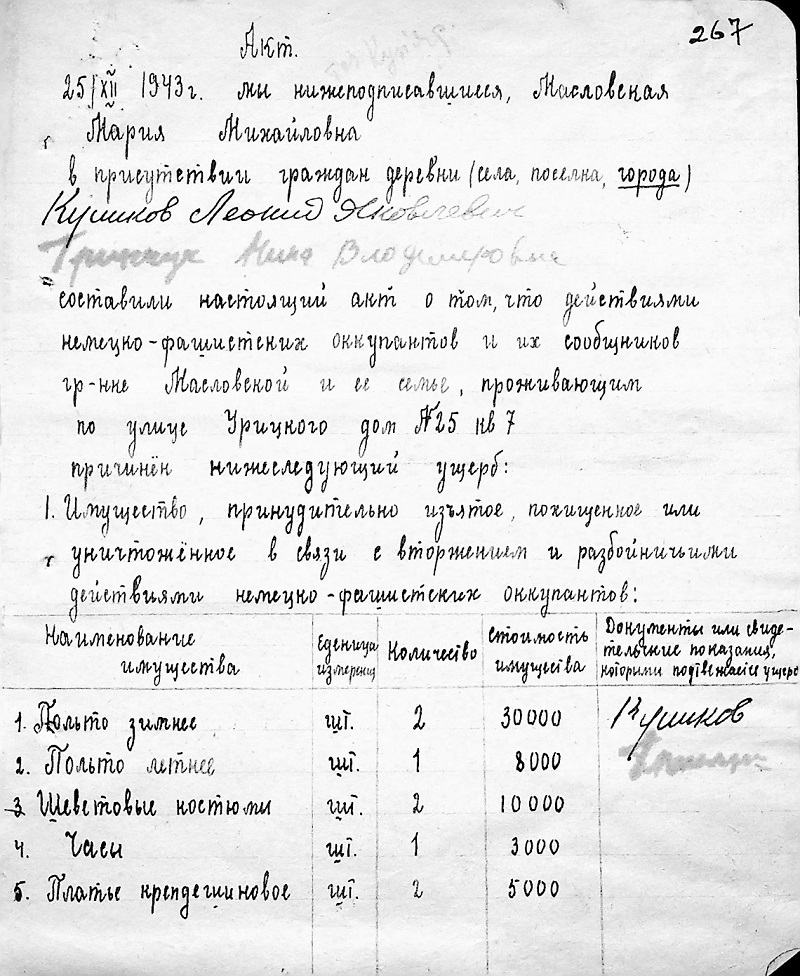 267
Акт.
25/XII 1943г. мы нижеподписавшиеся, Масловская
Мария Михайловна
в присутствии граждан деревни (села, поселка, города)
Кушков Леонид Яковлевич
Нина Владимировна
составили настоящий акт о том, что действиями
немецко-фашистских оккупантов и их сообщников
гр-нке Масловской и ее семье, проживающим
по улице Урицкого дом №25 кв 7
причинён нижеследующий ущерб:
1. Имущество, принудительно изъятое, похищенное или
уничтожённое в связи с вторжением и разбойничьими
действиями немецко-фашистских оккупантов:
Наименование имущества | Еденица измерения | Количество | Стоимость имущества | Документы или свиде-тельские показания, которыми подтвежается ущерб
1. Польто зимнее | шт. | 2 | 30000 | Кушков
2. Польто летнее | шт. | 1 | 8000
3. Шеветовые костюми | шт. | 2 | 10000
4. Часы | шт. | 1 | 3000
5. Платье крепдешиновое | шт. | 2 | 5000